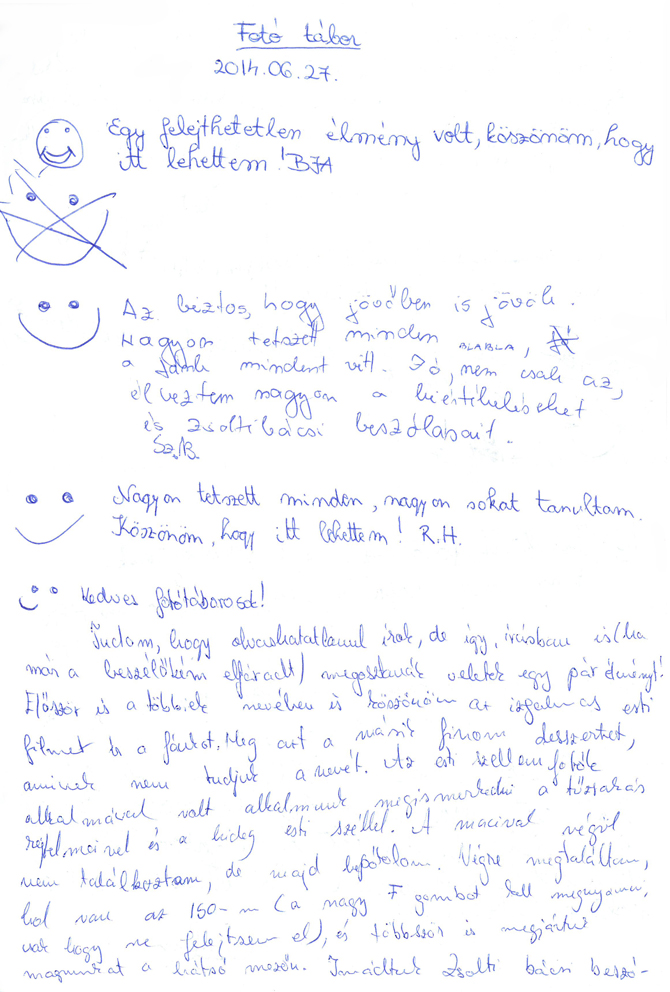 Fotó tábor
2014.06.27.
Egy felejthetetlen élmény volt, köszönöm, hogy
itt lehettem! BJA
Az biztos, hogy jövőben is jövök.
Nagyon tetszett minden BLABLA,
a fánk mindent vitt. Jó, nem csak az,
élveztem nagyon a kiértékeléseket
és Zsoltibácsi beszólásait.
Sz.B.
Nagyon tetszett minden, nagyon sokat tanultam.
Köszönöm, hogy itt lehettem! R.H.
Kedves fotótáborosok!
Tudom, hogy olvashatatlanul írok, de így, írásban is (ha
már a beszélőkém elfáradt) megosztanék veletek egy pár élményt!
Először is a többiek nevében is köszönöm az izgalmas esti
filmet és a fánkot. Meg azt a másik finom desszertet,
aminek nem tudjuk a nevét. Az esti szellemfotók
alkalmával volt alkalmunk megismerkedni a tűzrakás
rejtelmeivel és a hideg esti széllel. A macival végül
nem találkoztam, de majd bepótolom. Végre megtaláltam,
hol van az 150-n (a nagy F gombot kell megnyomni,
csak hogy ne felejtsem el), és többször is megjártuk
magunkat a hátsó mezőn. Imádtuk Zsolti bácsi beszó-